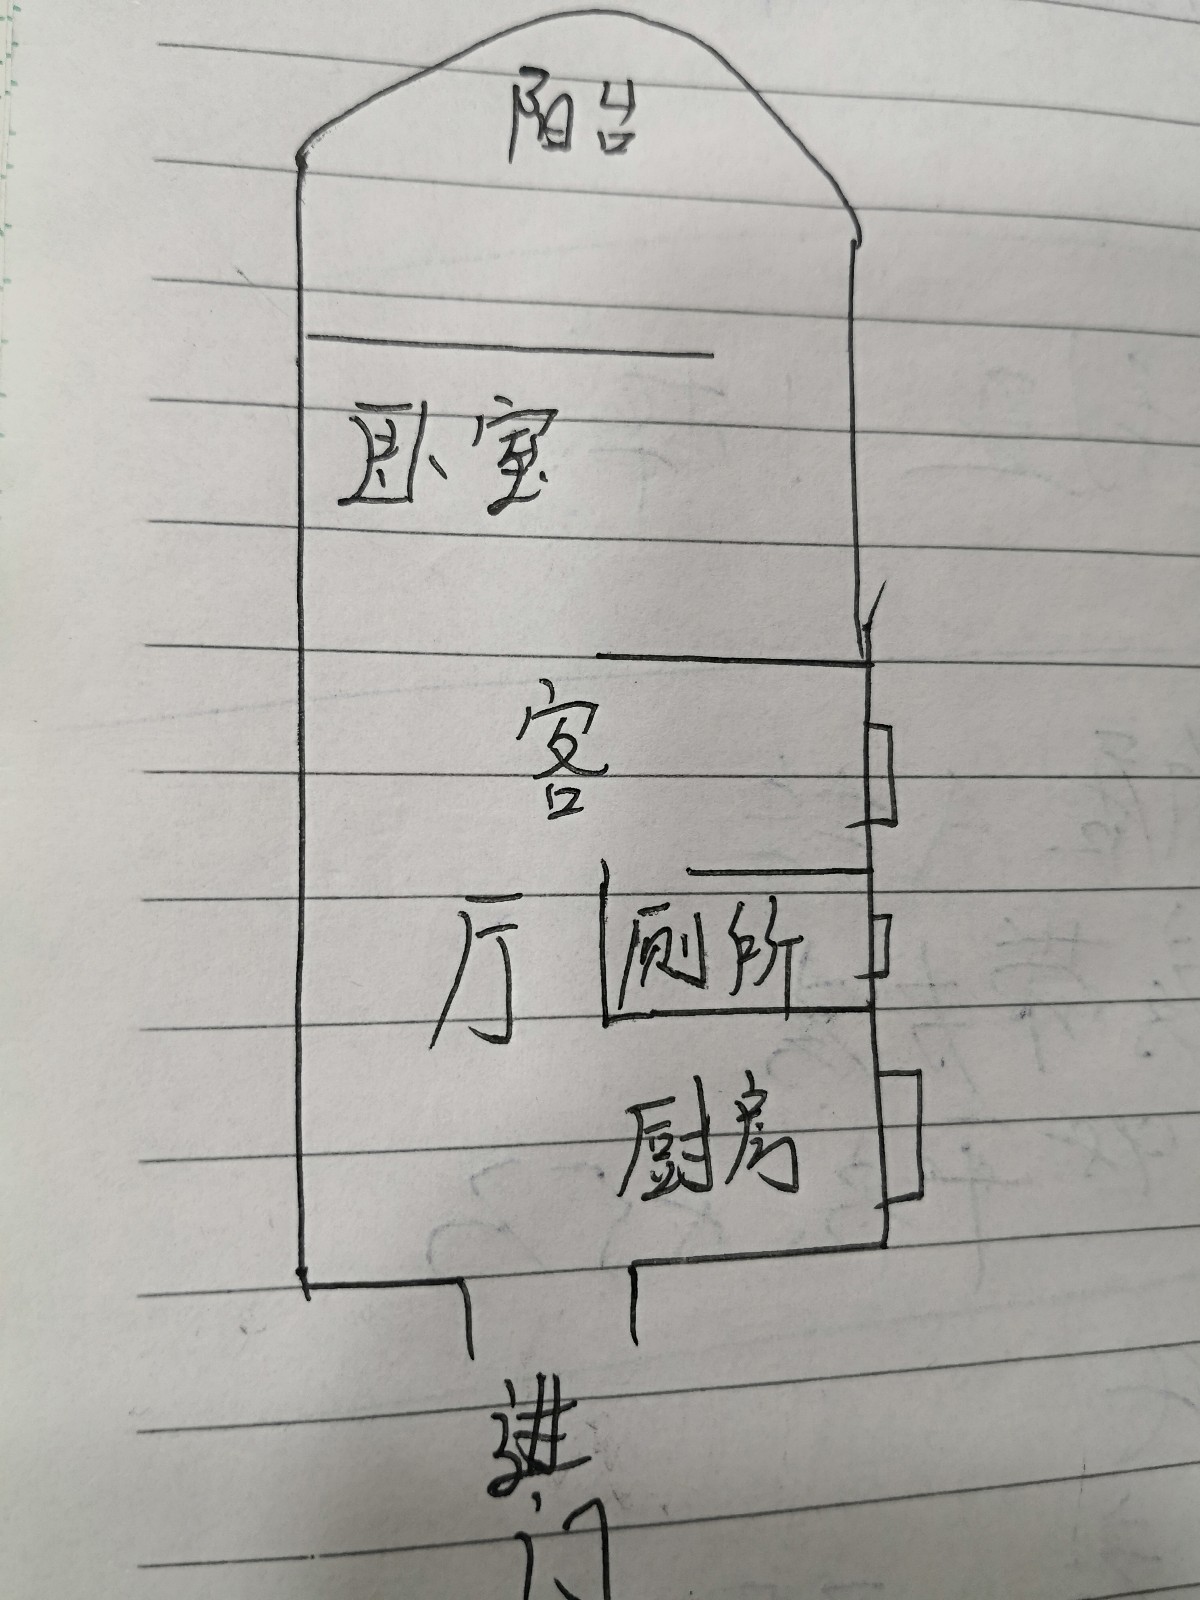 阳台
卧室
客
厅
厕所
厨房
进
门